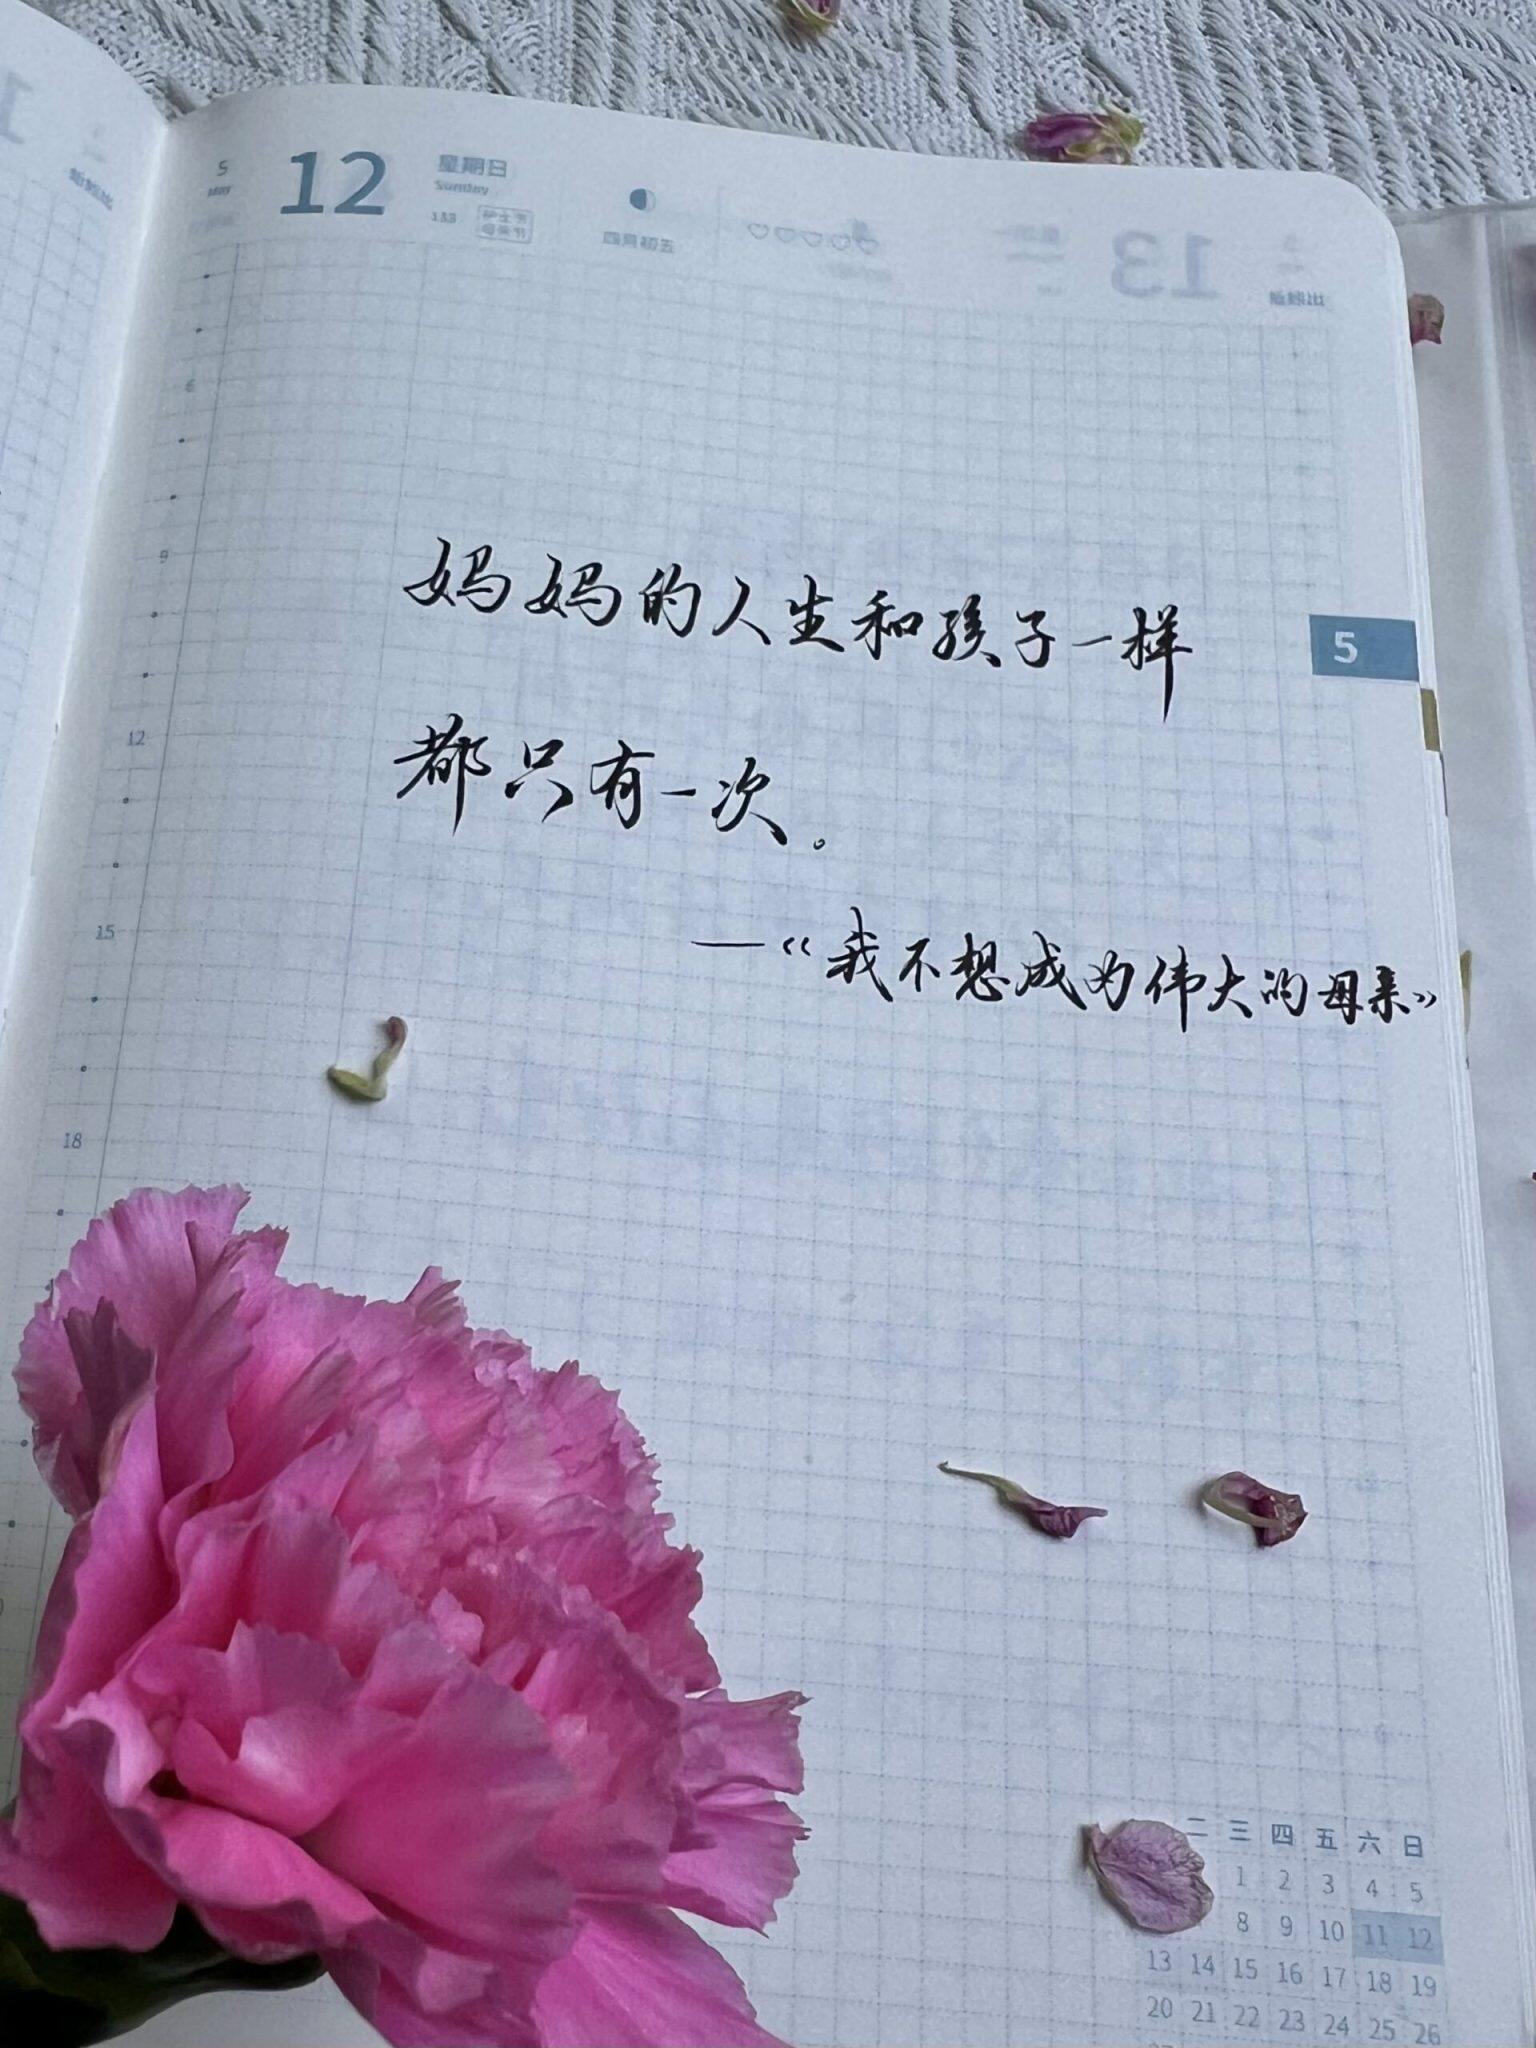 5
May
12
星期日
Sunday
133
护士节
母亲节
四月初五
6
9
妈妈的人生和孩子一样
5
12
都只有一次。
15
—《我不想成为伟大的母亲》
18
二 三 四 五 六 日
1 2 3 4 5
8 9 10 11 12
13 14 15 16 17 18 19
20 21 22 23 24 25 26